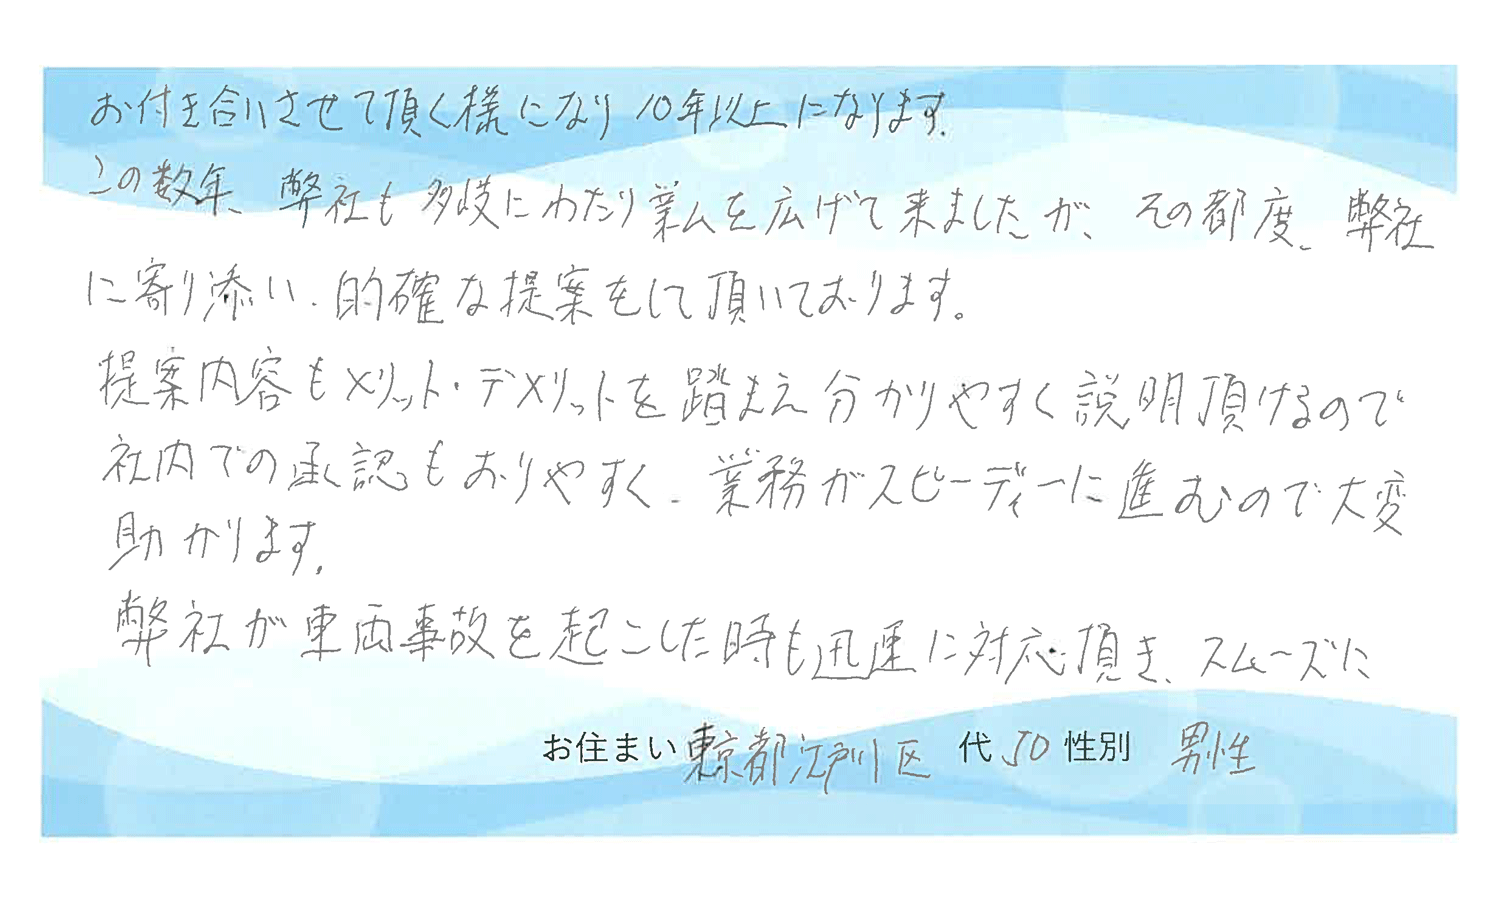 お付き合いさせて頂く様になり10年以上になります。
この数年、弊社も多岐にわたり業ムを広げて来ましたが、その都度、弊社
に寄り添い、的確な提案をして頂いております。
提案内容もメリット・デメリットを踏まえ分かりやすく説明頂けるので
社内での承認もおりやすく、業務がスピーディーに進むので大変
助かります。
弊社が車両事故を起こした時も迅速に対応頂き、スムーズに
お住まい 東京都江戸川区 代 50 性別 男性